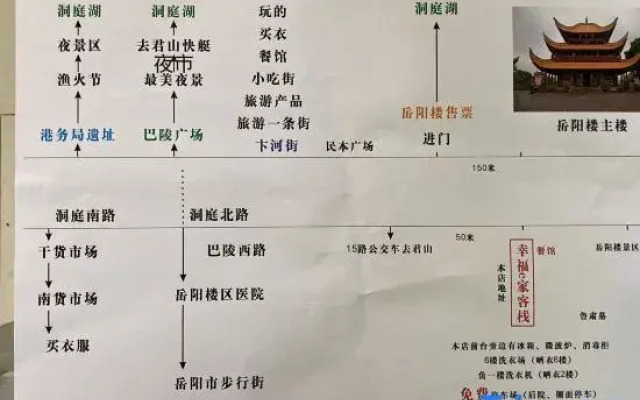 洞庭湖
夜景区
渔火节
港务局遗址
洞庭湖
去君山快艇
夜市
最美夜景
巴陵广场
玩的
买衣
餐馆
小吃街
旅游产品
旅游一条街
卞河街
民本广场
洞庭湖
岳阳楼售票
进门
岳阳楼主楼
150米
洞庭南路
洞庭北路
50米
干货市场
南货市场
买衣服
巴陵西路
岳阳楼区医院
岳阳市步行街
15路公交车去君山
本店地址
幸福e家客栈
餐馆
岳阳楼景区
鲁肃墓
本店前台旁边有冰箱、微波炉、消毒柜
6楼洗衣场（晒衣6楼）
负一楼洗衣机（晒衣2楼）
免费停车场（后院、侧面停车）